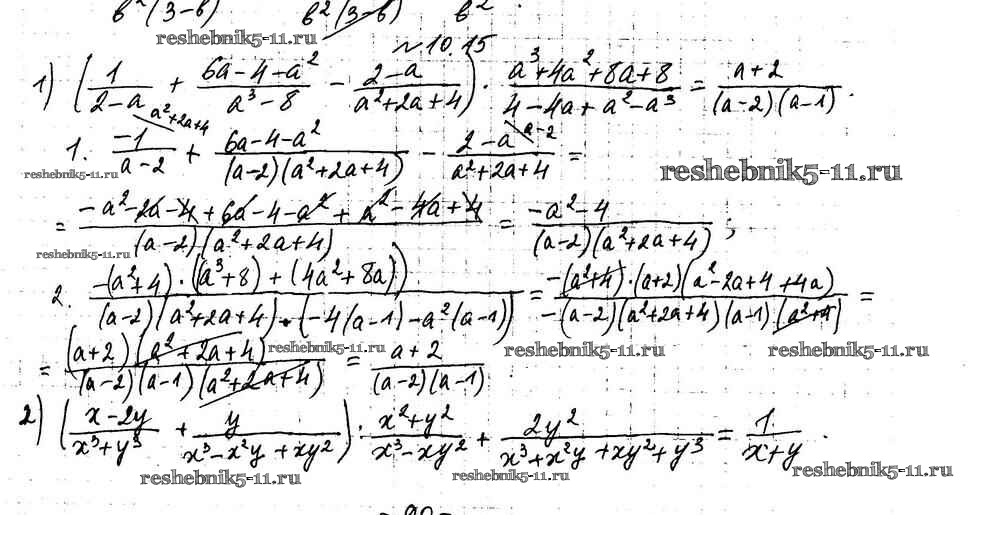 b²(3-b) b²(3-b) b²
reshebnik5-11.ru
№10.15
1) (1/(2-a) + (6a-4-a²)/(a³-8) - (2-a)/(a²+2a+4)) · (a³+4a²+8a+8)/(4-4a+a²-a³) = (a+2)/((a-2)(a-1)).
a²+2a+4 a-2
1. -1/(a-2) + (6a-4-a²)/((a-2)(a²+2a+4)) - (2-a)/(a²+2a+4) =
reshebnik5-11.ru reshebnik5-11.ru
= (-a²-2a-4+6a-4-a²+a²-4a+4)/((a-2)(a²+2a+4)) = (-a²-4)/((a-2)(a²+2a+4));
reshebnik5-11.ru
2. (-(a²+4)·((a³+8)+(4a²+8a)))/((a-2)(a²+2a+4)·(-4(a-1)-a²(a-1))) = (-(a²+4)·(a+2)(a²-2a+4+4a))/(-(a-2)(a²+2a+4)(a-1)(a²+4)) =
= ((a+2)(a²+2a+4))/((a-2)(a-1)(a²+2a+4)) = (a+2)/((a-2)(a-1)).
reshebnik5-11.ru reshebnik5-11.ru reshebnik5-11.ru
2) ((x-2y)/(x³+y³) + y/(x³-x²y+xy²)) · (x²+y²)/(x³-xy²) + 2y²/(x³+x²y+xy²+y³) = 1/(x+y).
reshebnik5-11.ru reshebnik5-11.ru reshebnik5-11.ru